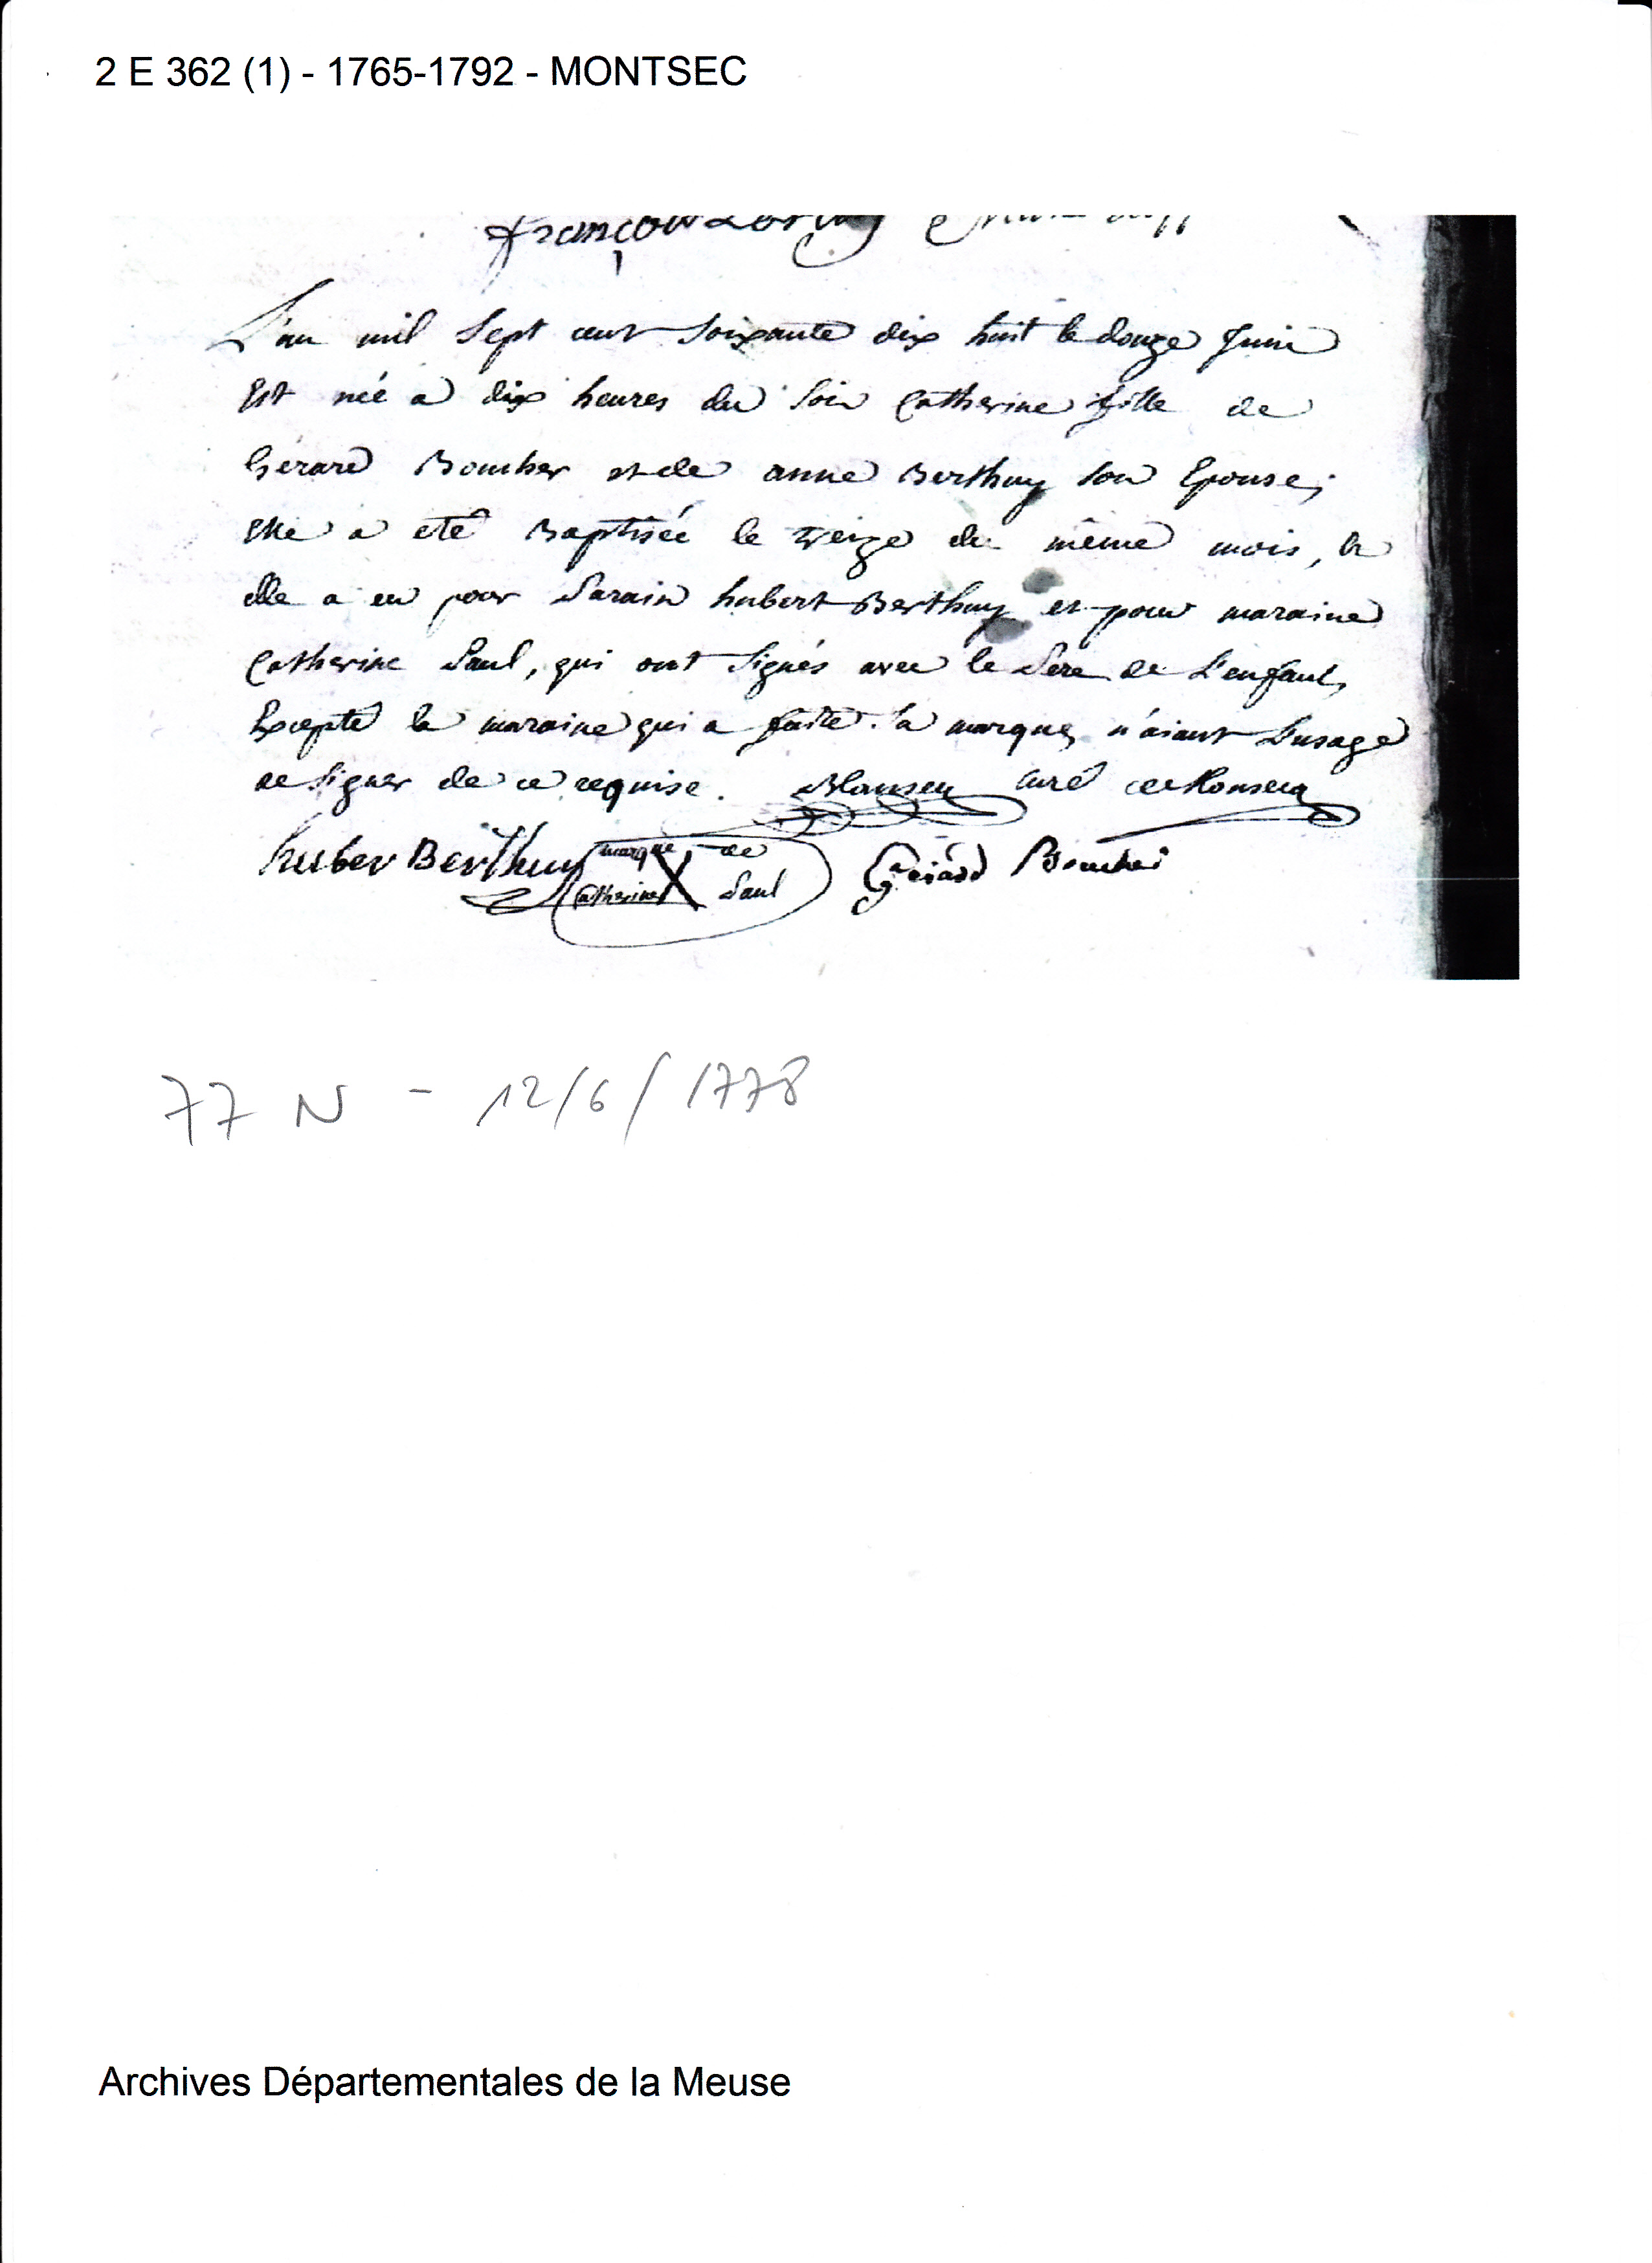 2 E 362 (1) - 1765-1792 - MONTSEC
françois
L'an mil Sept cent Soixante dix huit le douze Juin
Est née a dix heures du Soir Catherine fille de
Gérard Boucher et de anne Berthuy Son Epouse;
Elle a eté Baptisée le treize du même mois, &
elle a eu pour Parain hubert Berthuy et pour maraine
Catherine Paul, qui ont Signés avec le Pere de L'enfant,
Excepté la maraine qui a faite Sa marque, n'aiant L'usage
de Signer de ce requise. Curé de Monsecq
huber BerThuy marque de Gérard Boucher
Catherine X Paul
77 N - 12/6/1778
Archives Départementales de la Meuse